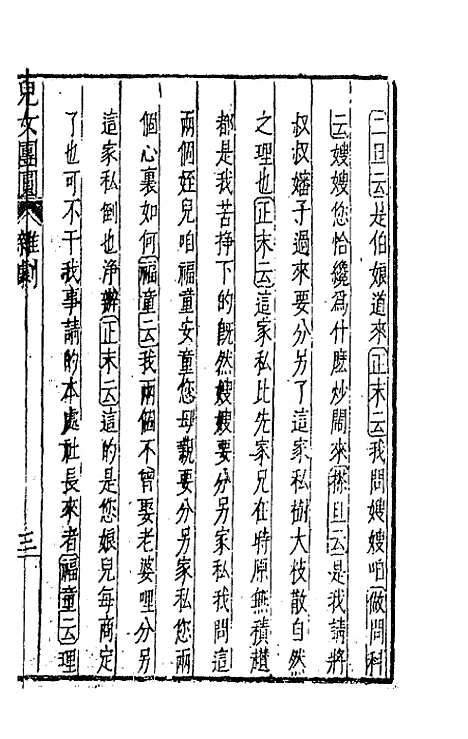 二旦云是伯娘道來正末云我問嫂嫂咱做問科
云嫂嫂您恰纔爲什麽炒鬧來搽旦云是我請將
叔叔嬸子過來要分另了這家私樹大枝散自然
之理也正末云這家私比先家兄在時原無積趲
都是我苦挣下的旣然嫂嫂要分另家私我問這
兩個姪兒咱福童安童您母親要分另家私您兩
個心裏如何福童云我兩個不曾娶老婆哩分另
這家私倒也净辦正末云這的是您娘兒每商定
了也可不干我事請的本處社長來者福童云理
兒女團圓 雜劇 三